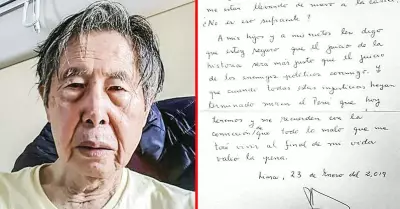 me están llevando de nuevo a la cárcel.
¿No es eso suficiente?
A mis hijos y a mis nietos les digo
que estoy seguro que el juicio de la
historia será más justo que el juicio
de los enemigos políticos conmigo. Y
que cuando todas estas injusticias hayan
terminado miren el Perú que hoy
tenemos y me recuerden con la
convicción de que todo lo malo que me
tocó vivir al final de mi vida
valió la pena.
Lima, 23 de Enero del 2,019